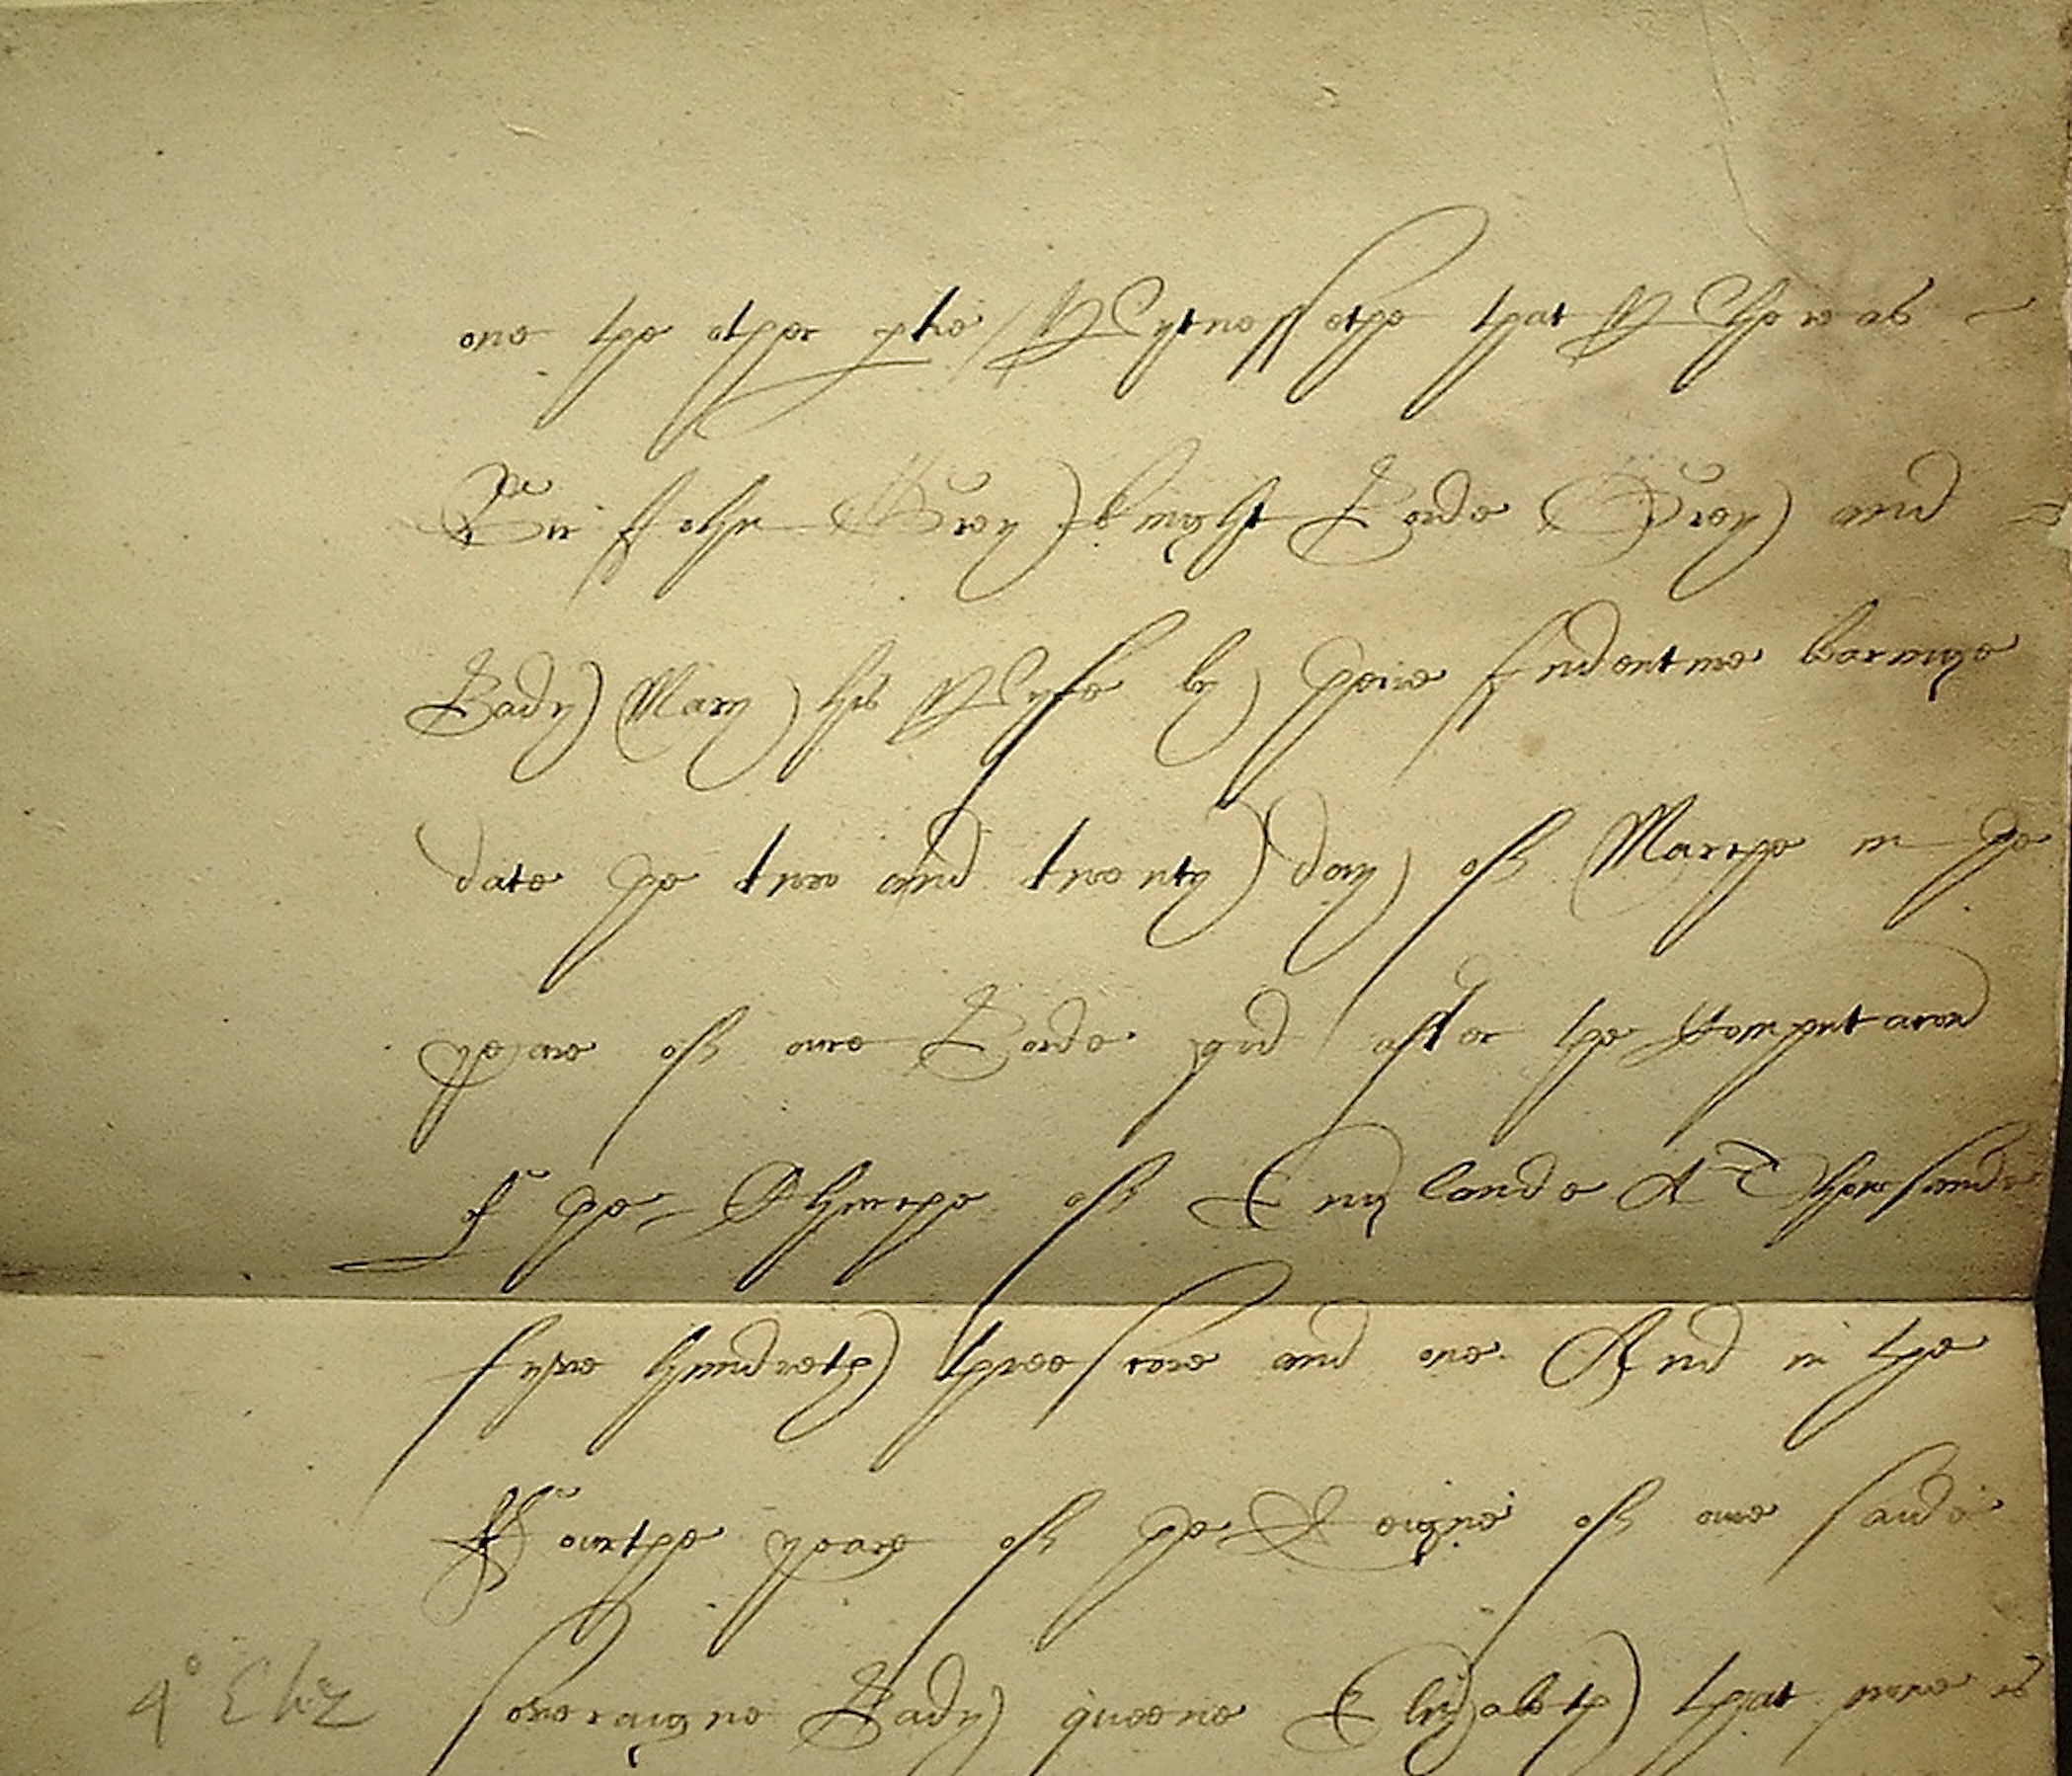 one the other p[ar]te / Wytnessethe that Wheras
Sir John Grey knight Lorde Grey and
Lady Mary his Wyfe by theire Indenture bearinge
date the two and twenty day of Marche in the
yeare of oure Lorde god after the Computacon
of the Churche of Englande A Thousande
fyve hundreth threescore and one And in the
Fourthe yeare of the Reigne of oure saide
4° Eliz
soveraigne Lady queene Elizabeth that nowe is